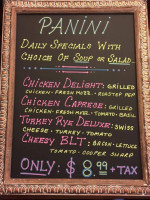 PANINI
DAILY SPECIALS WITH
CHOICE OF SOUP OR SALAD
CHICKEN DELIGHT: GRILLED
CHICKEN - FRESH MUZZ. - ROASTED PEP.
CHICKEN CAPRESE: GRILLED
CHICKEN - FRESH MUZZ. - TOMATO - BASIL
TURKEY RYE DELUXE: SWISS
CHEESE - TURKEY - TOMATO
CHEESY BLT: BACON - LETTUCE
TOMATO - COOPER SHARP
ONLY: $8.99 + TAX